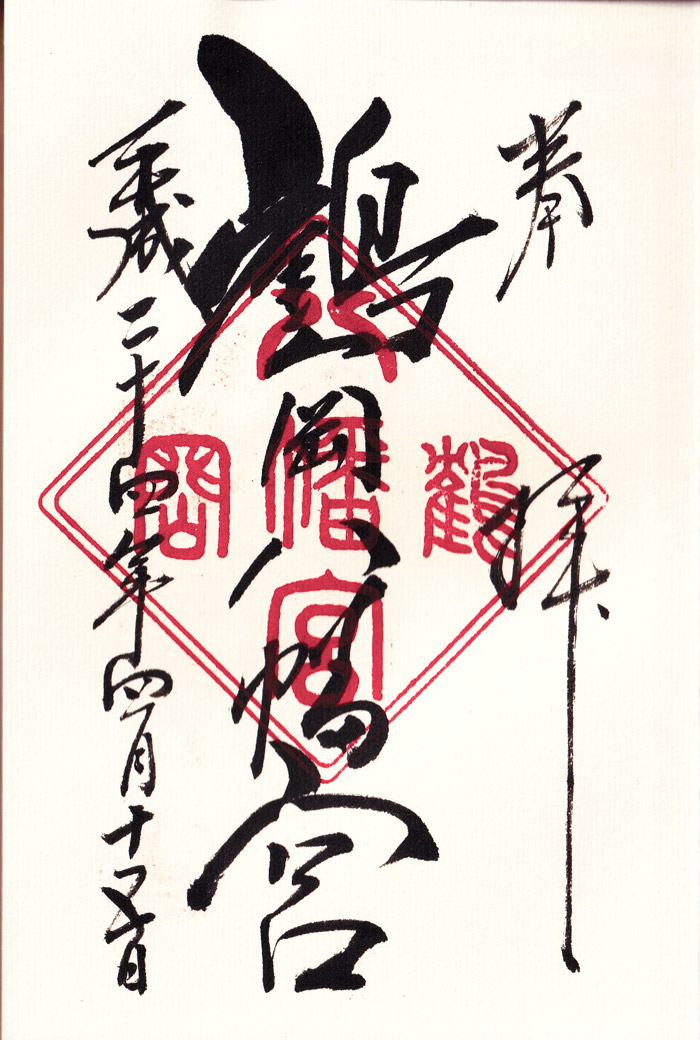 奉拝
鶴岡八幡宮
平成二十四年四月十五日
鶴岡八幡宮